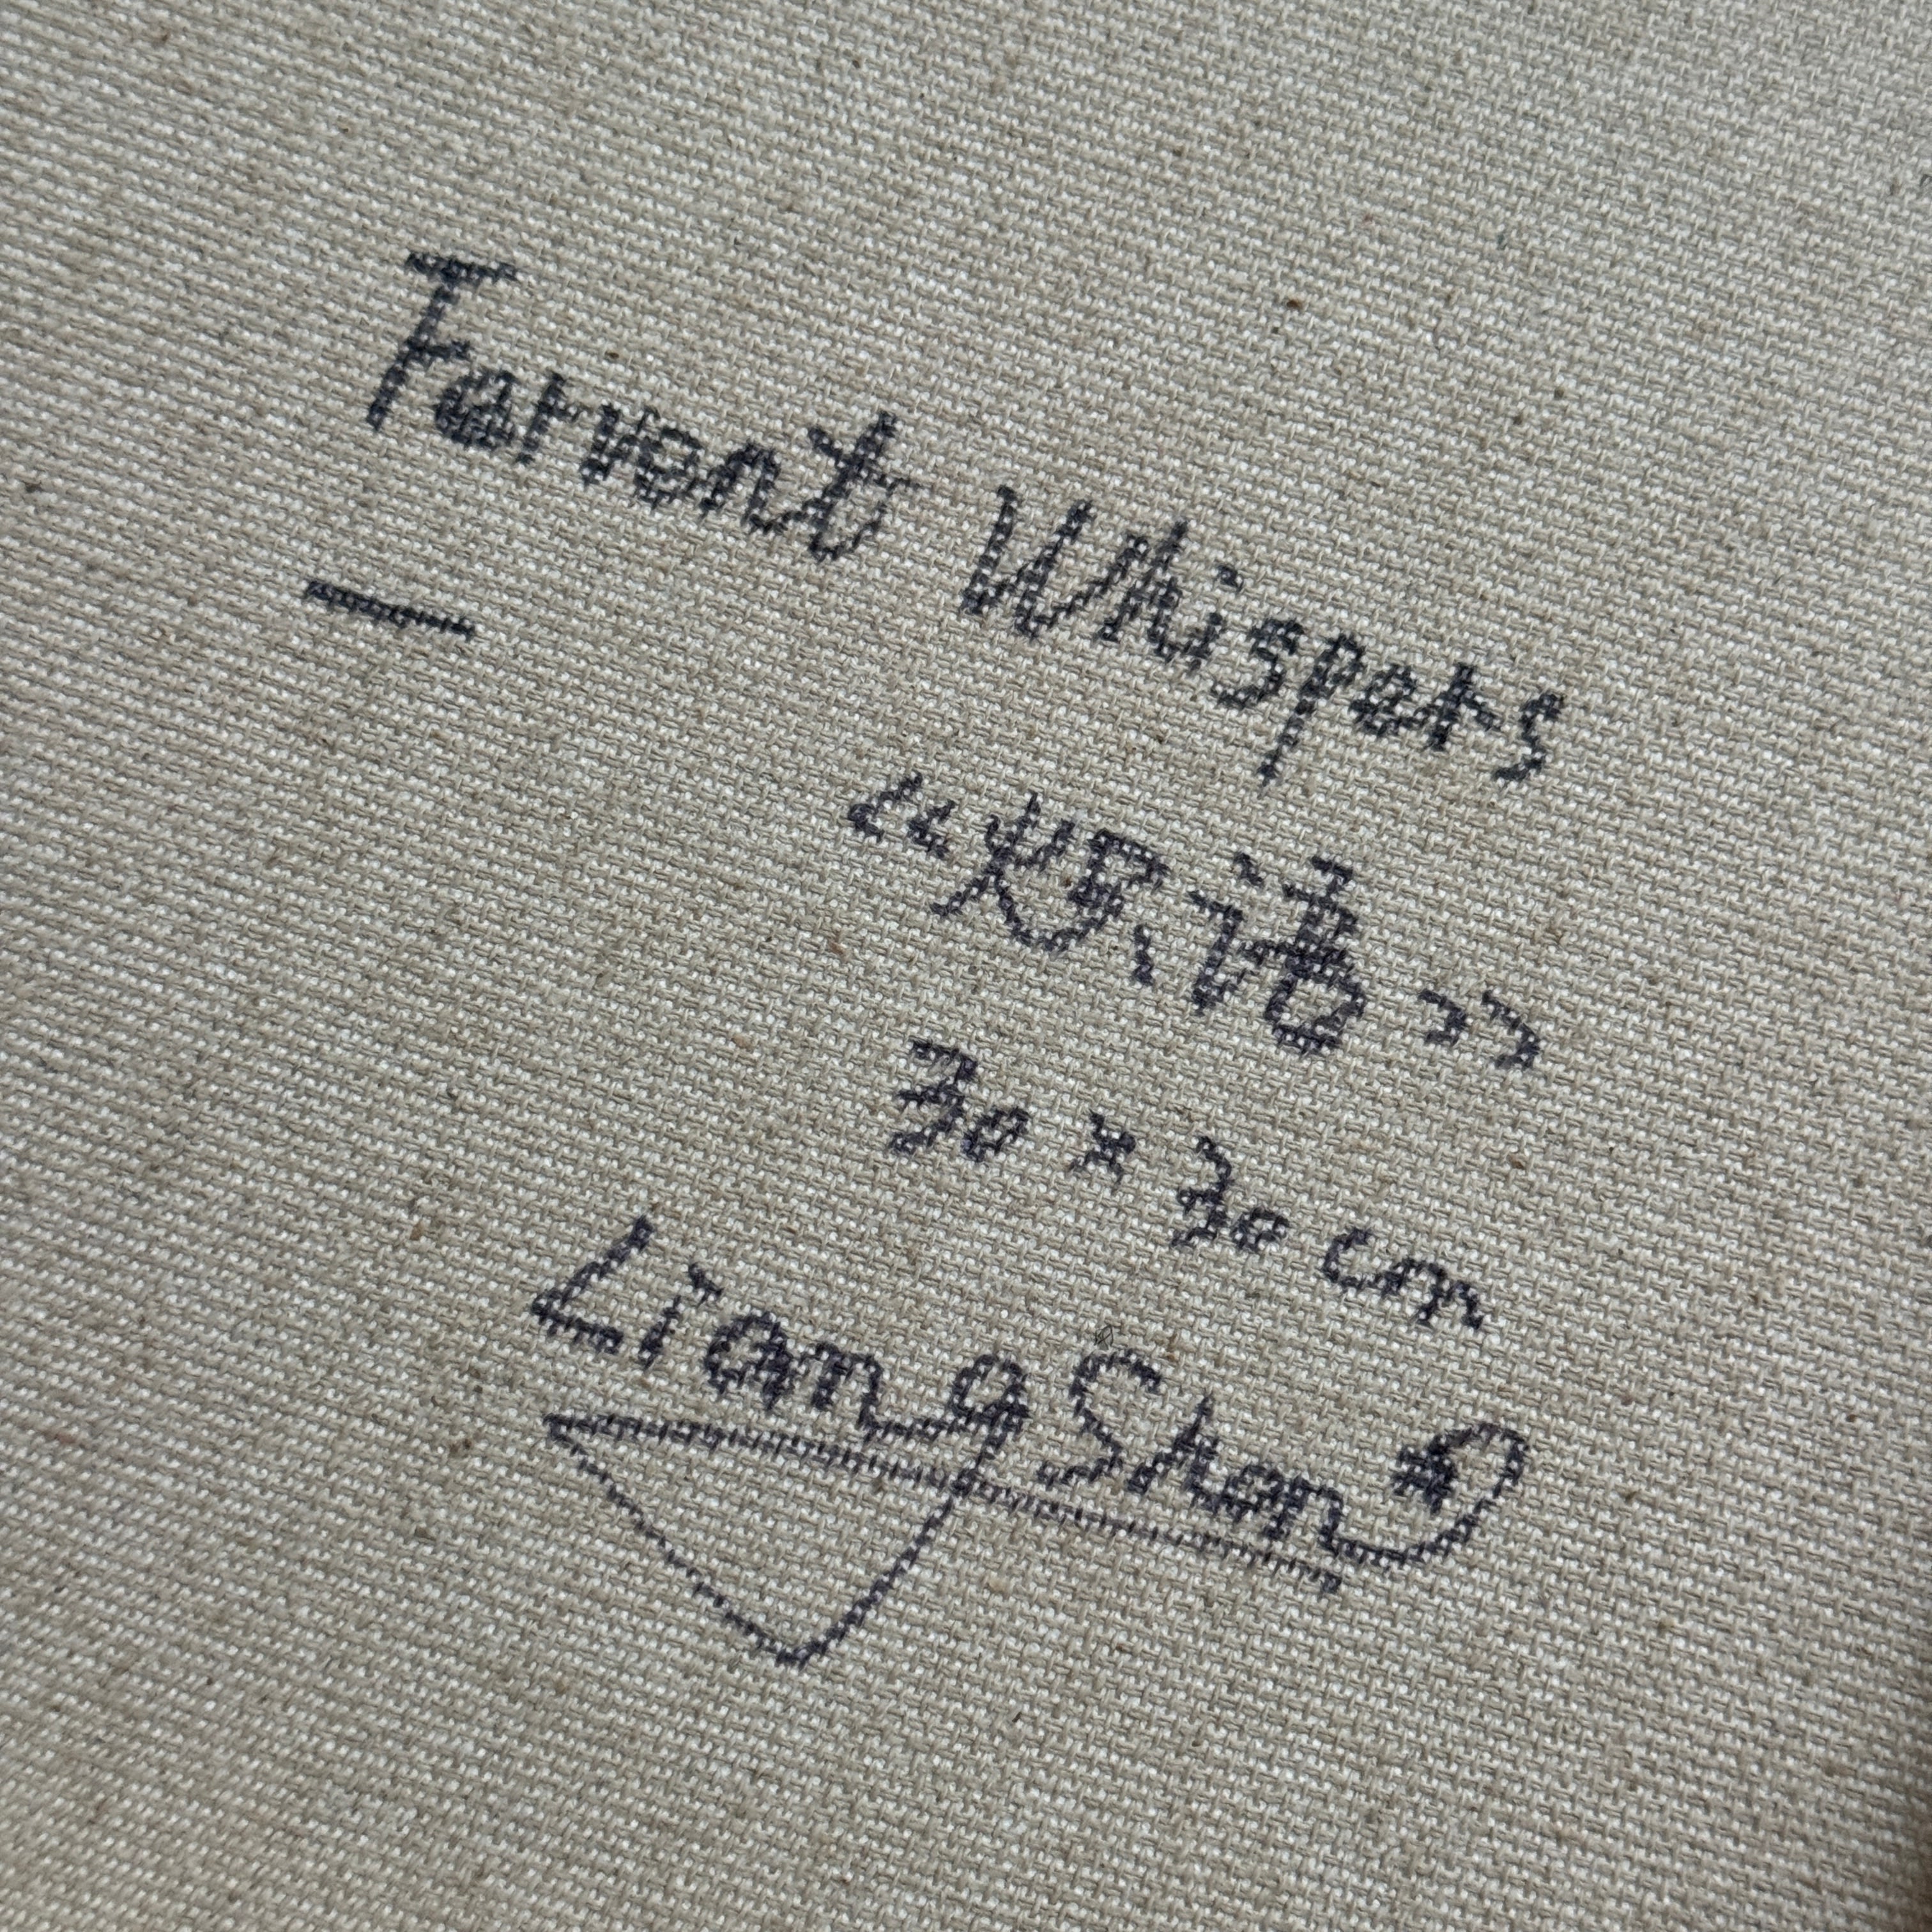 Fervent Whispers
—
“炽语”
30 × 30 cm
Liang Shan